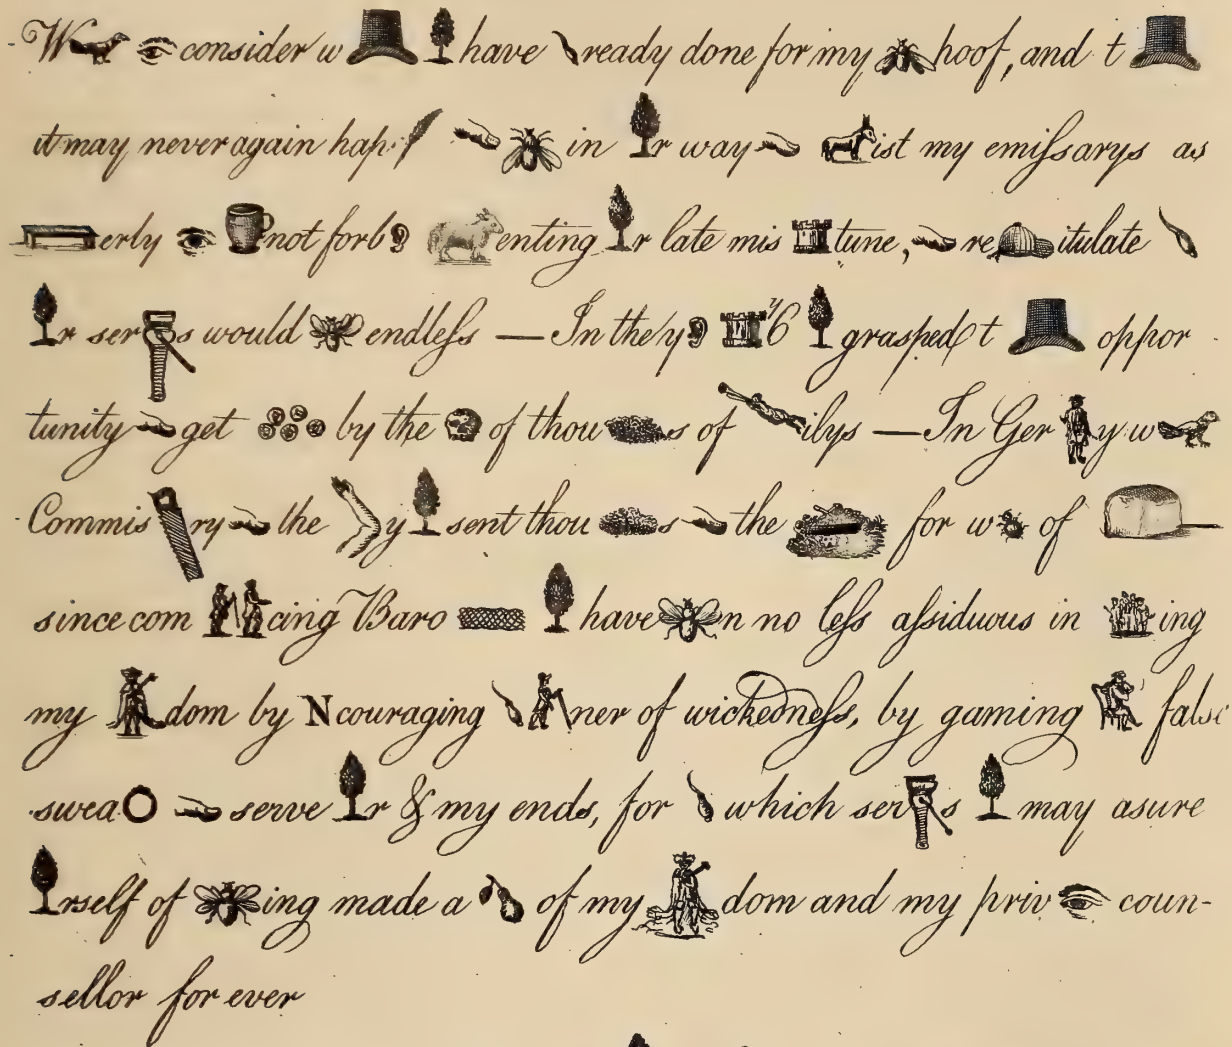 W I consider w have ready done for my hoof, and t
it may never again hap in r way ist my emiſsarys as
erly not forb enting r late mis tune, re itulate
r ser s would endleſs — In the y 'y6 grasped t oppor
tunity get by the of thou s of ilys — In Ger y w
Commis ry the y sent thou s the for w of
since com cing Baro have n no leſs aſsiduous in ing
my dom by N couraging ner of wickedneſs, by gaming false
swea O serve r & my ends, for which ser s may asure
rself of ing made a of my dom and my priv coun-
sellor for ever